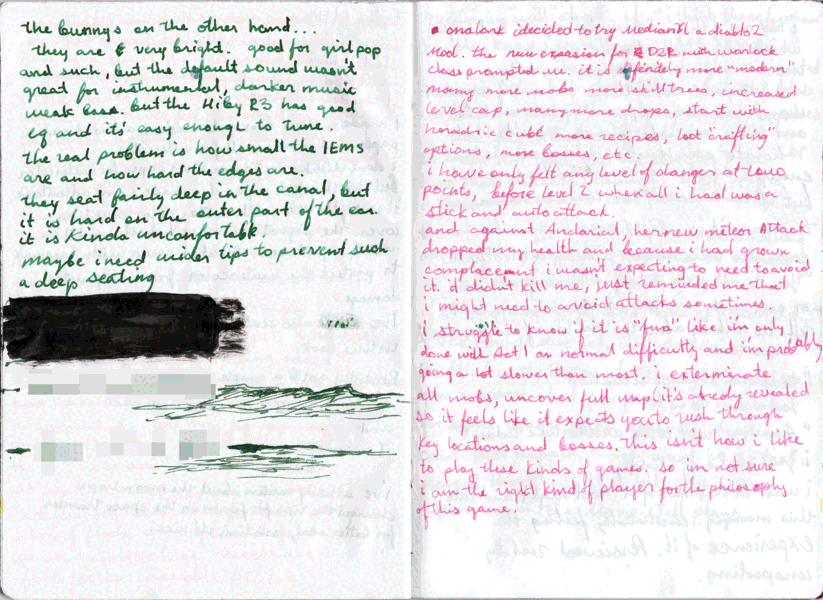 the bunnys on the other hand...
they are very bright. good for girl pop
and such, but the default sound wasn't
great for instrumental, darker music
weak bass. but the Hiby R3 has good
eq and it's easy enough to tune.
the real problem is how small the IEMS
are and how hard the edges are.
they seat fairly deep in the canal, but
it is hard on the outer part of the ear.
it is kinda uncomfortable.
maybe i need wider tips to prevent such
a deep seating
on a lark i decided to try MedianXL a diablo 2
mod. the new expansion for D2R with warlock
class prompted me. it is definitely more "modern"
many more mobs more skill trees, increased
level cap, many more drops, start with
horadric cube more recipes, loot "crafting"
options, more bosses, etc.
i have only felt any level of danger at two
points, before level 2 when all i had was a
stick and auto attack.
and against Andariel, her new meteor Attack
dropped my health and because i had grown
complacent i wasn't expecting to need to avoid
it. it didn't kill me, just reminded me that
i might need to avoid attacks sometimes.
i struggle to know if it is "fun" like i'm only
done with Act 1 on normal difficulty and i'm probably
going a lot slower than most. i exterminate
all mobs, uncover full map (it's already revealed
so it feels like it expects you to rush through
key locations and bosses. this isn't how i like
to play these kinds of games. so i'm not sure
i am the right kind of player for the philosophy
of this game.